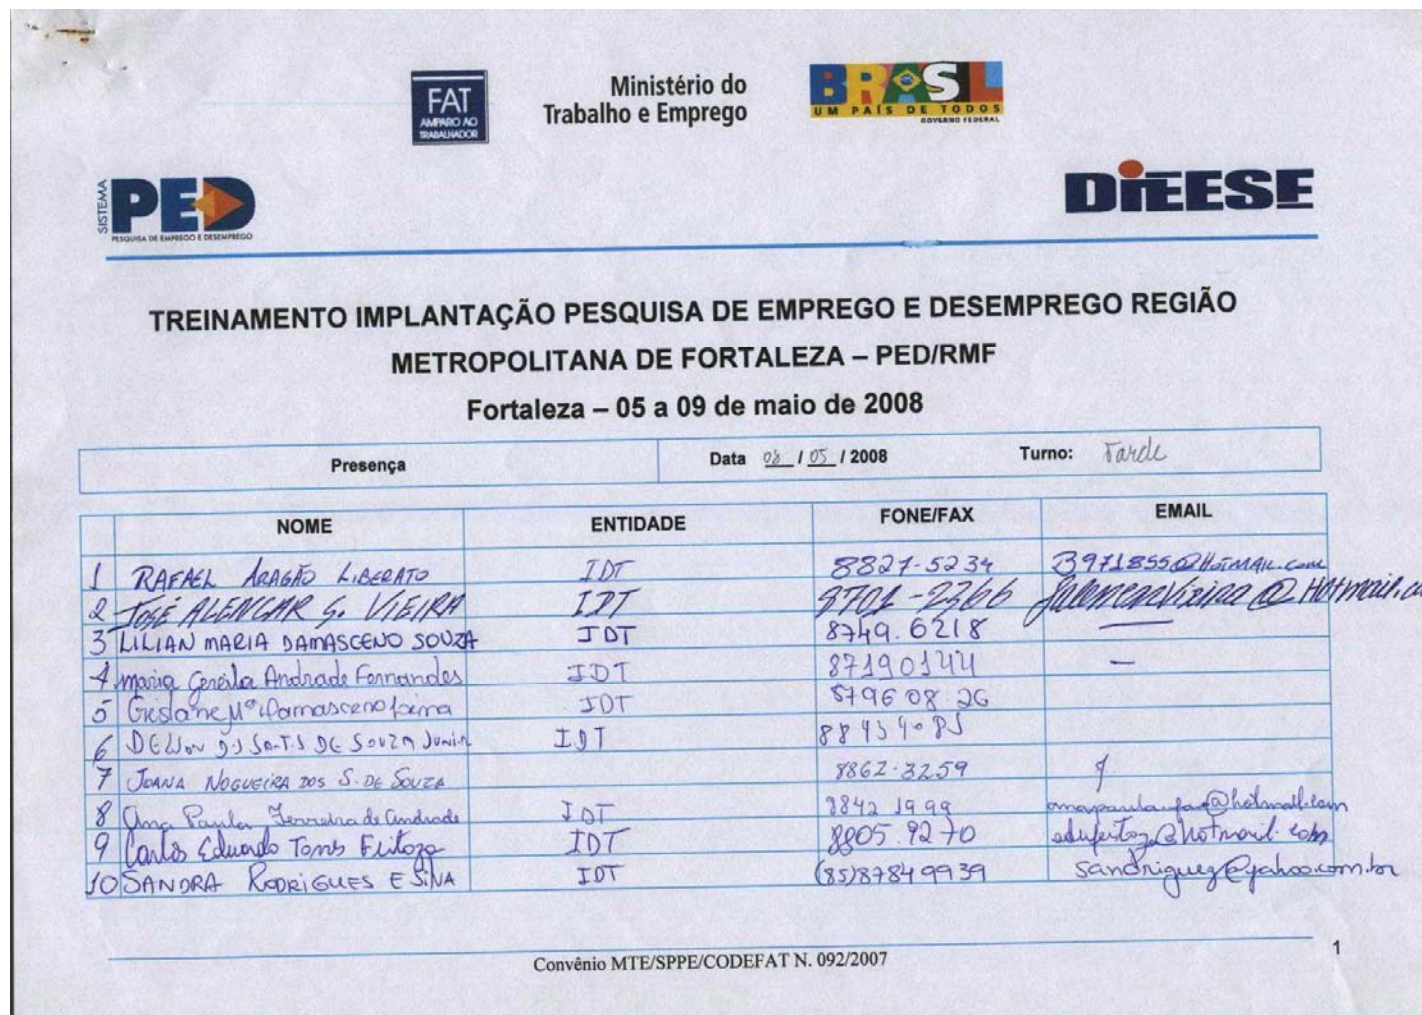 FAT
AMPARO AO
TRABALHADOR
Ministério do
Trabalho e Emprego
BRASIL
UM PAÍS DE TODOS
GOVERNO FEDERAL
SISTEMA
PED
PESQUISA DE EMPREGO E DESEMPREGO
DIEESE
TREINAMENTO IMPLANTAÇÃO PESQUISA DE EMPREGO E DESEMPREGO REGIÃO
METROPOLITANA DE FORTALEZA – PED/RMF
Fortaleza – 05 a 09 de maio de 2008
Presença Data 08 / 05 / 2008 Turno: Tarde
NOME ENTIDADE FONE/FAX EMAIL
1 RAFAEL ARAGÃO LIBERATO IDT 8827-5234 3971855@HOTMAIL.com
2 JOSÉ ALENCAR G. VIEIRA IDT 8701-2366
3 LILIAN MARIA DAMASCENO SOUZA IDT 8749.6218 —
4 maria Andrade Fernandes IDT 87190144 —
5 Gislane Mª Damasceno IDT 8796 08.26
6 DE SOUZA Junior IDT
7 JOANA NOGUEIRA DOS S. DE SOUZA 8862-3259
8 Ana Paula Ferreira de Andrade IDT 8842 1999
9 Carlos Eduardo Torres Feitoza IDT 8805.9270
10 SANDRA RODRIGUES E SILVA IDT (85)87849939 sandriguez@yahoo.com.br
Convênio MTE/SPPE/CODEFAT N. 092/2007
1